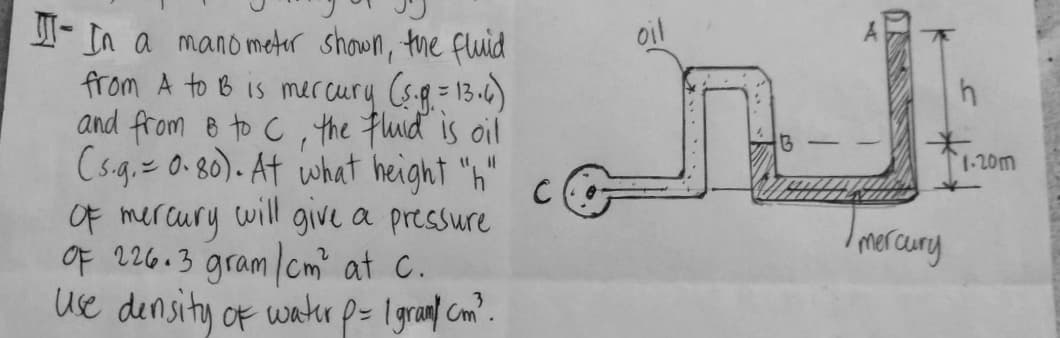 III- In a manometer shown, the fluid
from A to B is mercury (s.g. = 13.6)
and from B to C, the fluid is oil
(s.g. = 0.80). At what height "h"
OF mercury will give a pressure
OF 226.3 gram/cm² at C.
Use density OF water ρ = 1 gram/cm³.
oil
A
h
B
1.20m
C
mercury